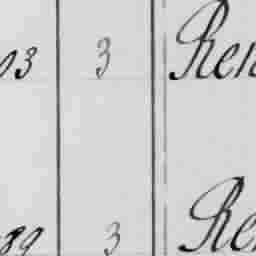 03 3 Ren
89 3 Re